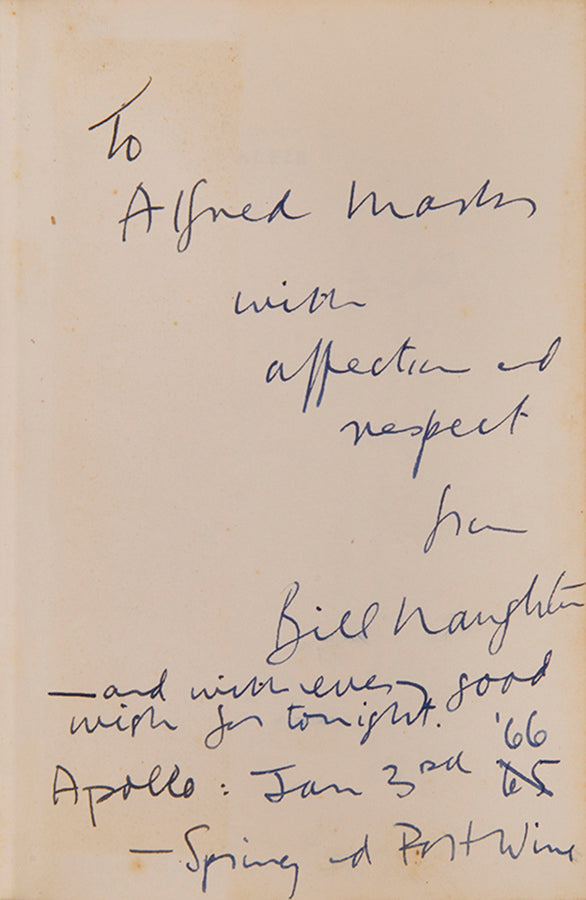 To
Alfred Marks
with
affection and
respect
from
Bill Naughton
—and with every good
wish for tonight.
Apollo: Jan 3rd '66
65
— Spring and Port Wine